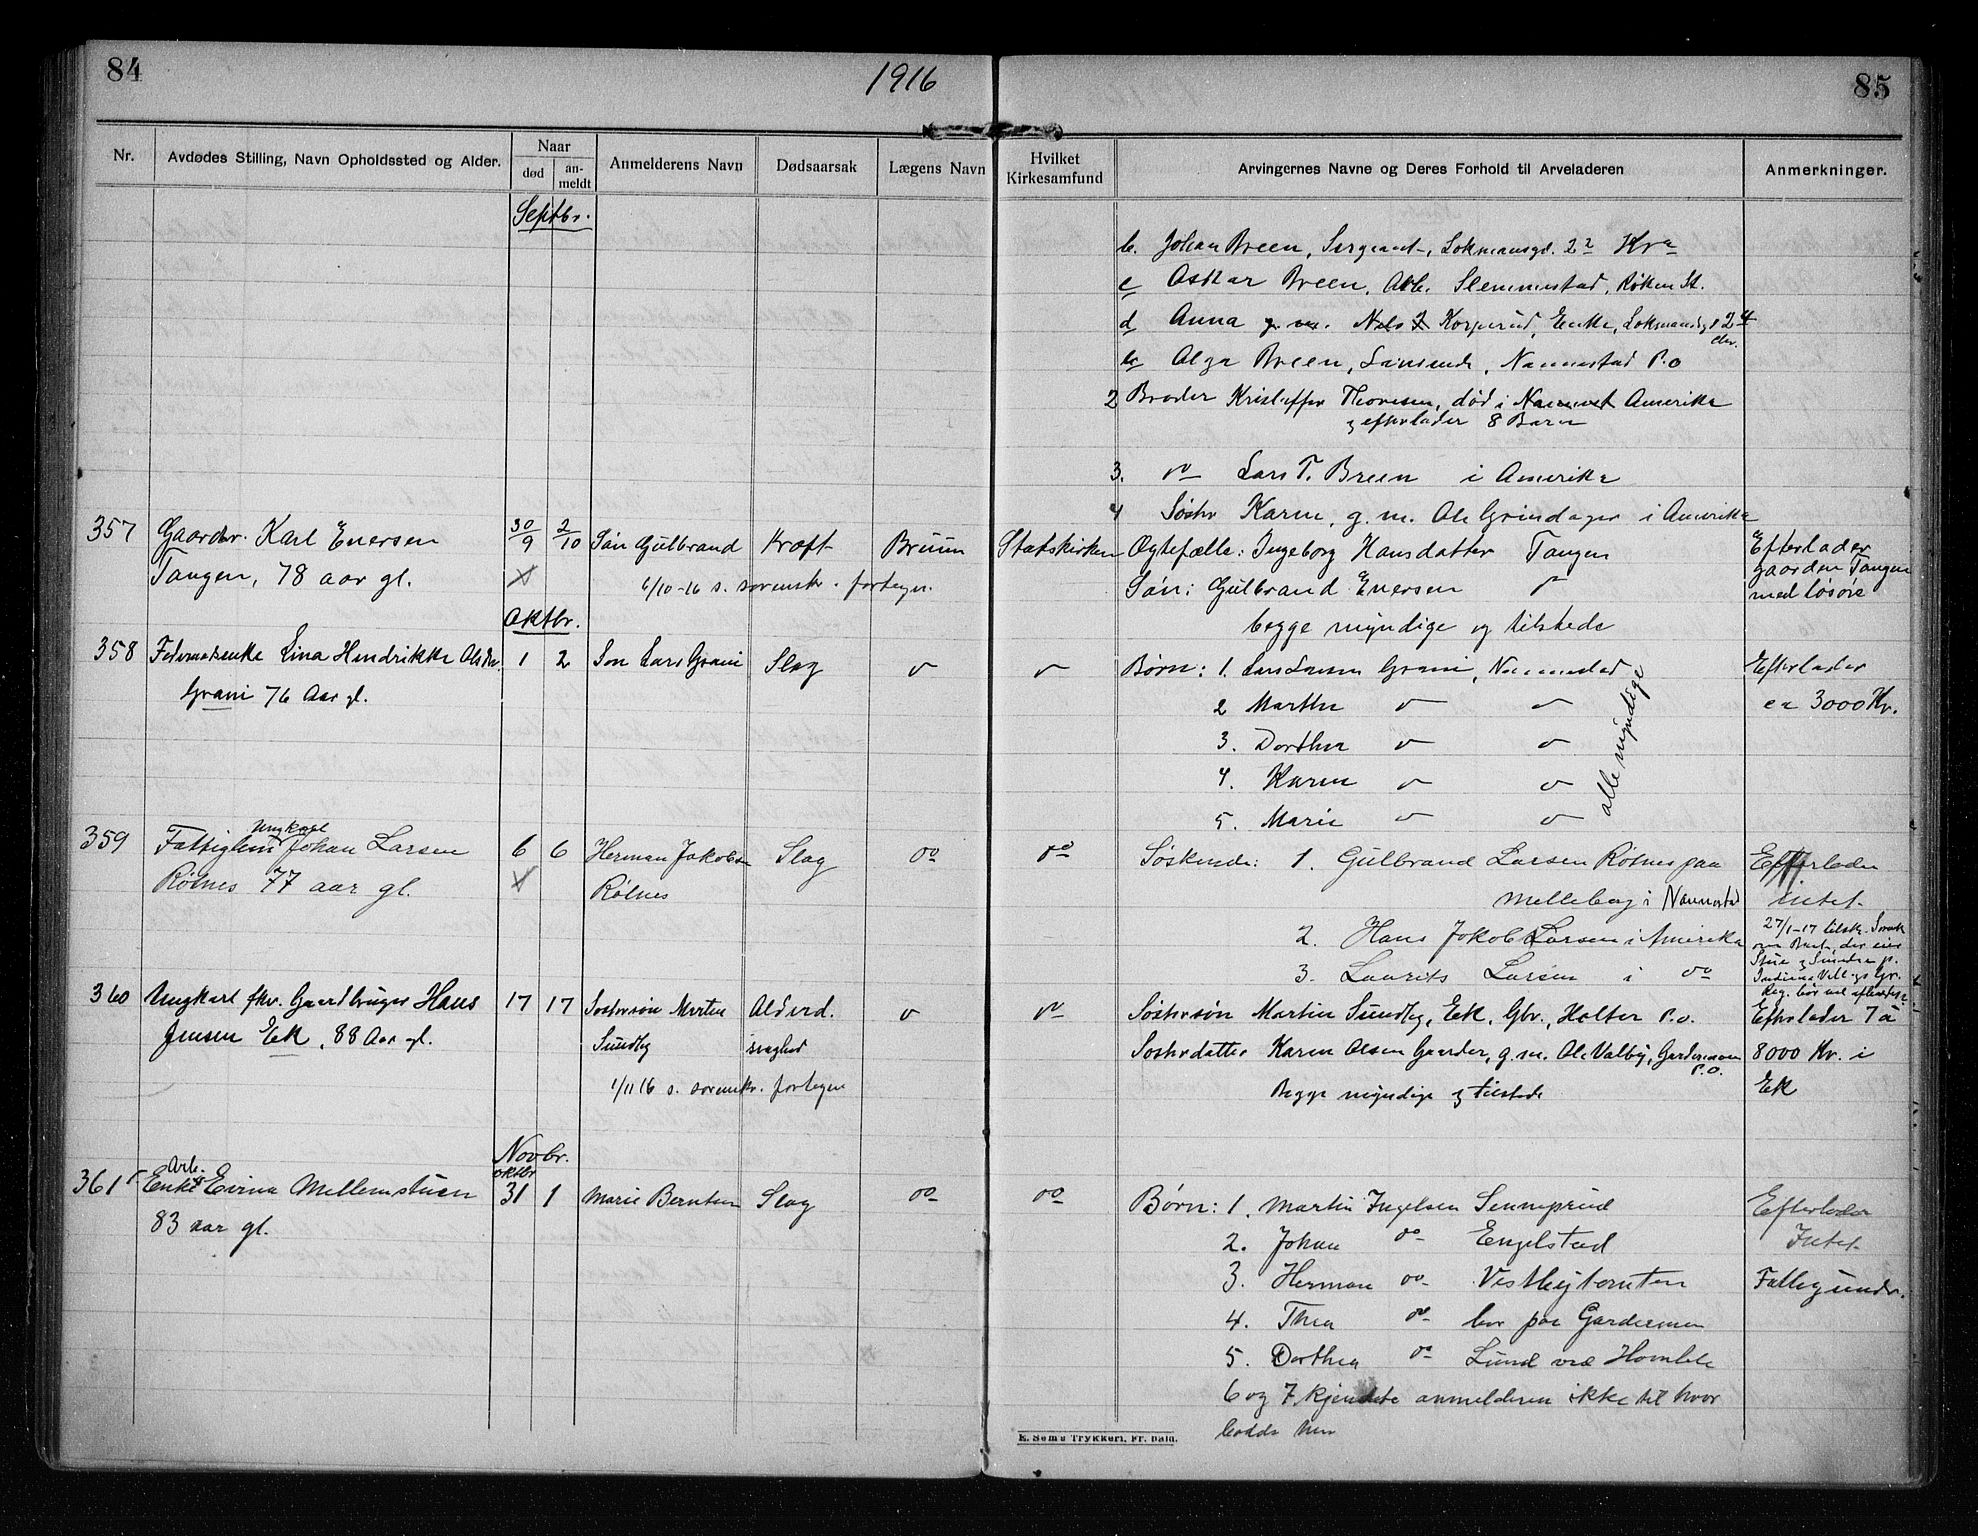 84
1916
85
Nr.
Avdødes Stilling, Navn Opholdssted og Alder.
Naar
død
an-
meldt
Anmelderens Navn
Dødsaarsak
Lægens Navn
Hvilket
Kirkesamfund
Arvingernes Navne og Deres Forhold til Arveladeren
Anmerkninger.
Septbr.
b. Johan Breen, Sergeant, Lokmansgd. 22 Kra
c Oskar Breen, Arb. Slemmestad, Røken St.
d Anna g. m. Nels Korperud, Enke, Lokmansg 24
e Olga Breen, Nannestad P.o
2 Broder Kristoffer Thoresen, død i Amerika
og efterlader 8 Barn
3. do Lars T. Breen i Amerika
4 Søster Karen, g. m. Ole Grindager i Amerika
357 Gaardbr. Karl Enersen 30/9 2/10 Søn Gulbrand Kræft Bruun Statskirken Ogtefælle: Ingeborg Hansdatter Tangen Efterlader
Tangen, 78 aar gl. 6/10-16 s. sorensk. fortegn. Søn: Gulbrand Enersen " gaarden Tangen
med løsøre
Oktbr.
begge myndige og tilstede
358 Føderaadsenke Lina Hendrikke Olsdtr. 1 2 Søn Lars Grani Slag " " Børn: 1. Lars Larsen Grani, Nannestad Efterlader
Grani 76 Aar gl. 2 Marthe " " ca 3000 Kr.
3. Dorthea " "
4. Karen " "
5. Marie " "
alle myndige
Ungkarl
359 Fattiglem Johan Larsen 6 6 Herman Jakobsen Slag do do Søskende: 1. Gulbrand Larsen Rølnes paa Efterlader
Rølnes 77 aar gl. Rølnes Melleborg i Nannestad intet
2. Hans Jakob Larsen i Amerika 27/1-17 tilskr. Sorensk
3. Laurits Larsen i do
360 Ungkarl fhv. Gaardbruger Hans 17 17 Søstersøn Martin Alderd. " do Søstersøn Martin Sundby, Ek, Gbr., Holter P.o. Efterlader 7 à
Jensen Ek, 88 Aar gl. Sundby svaghed Søsterdatter Karen Olsen Gaarder, g. m. Ole Valby, Gardermoen P.o. 8000 Kr. i
1/11 16 s. sorenskr. fortegn Begge myndige og tilstede Ek
Novbr.
oktbr
Arb.
361 Enke Evina Mellemstuen 31 1 Marie Berntsen Slag do do Børn: 1. Martin Ingelsen Sennerud Efterlader
83 aar gl. 2. Johan do Engelstad Intet
3. Herman do Fattigunder.
4. Thea do bor paa Gardermoen
5. Dorthea do Lund ved Homble
6 og 7 kjendte anmelderen ikke til hvor
bodde hen
E. Sem's Trykkeri, Fr. hald.